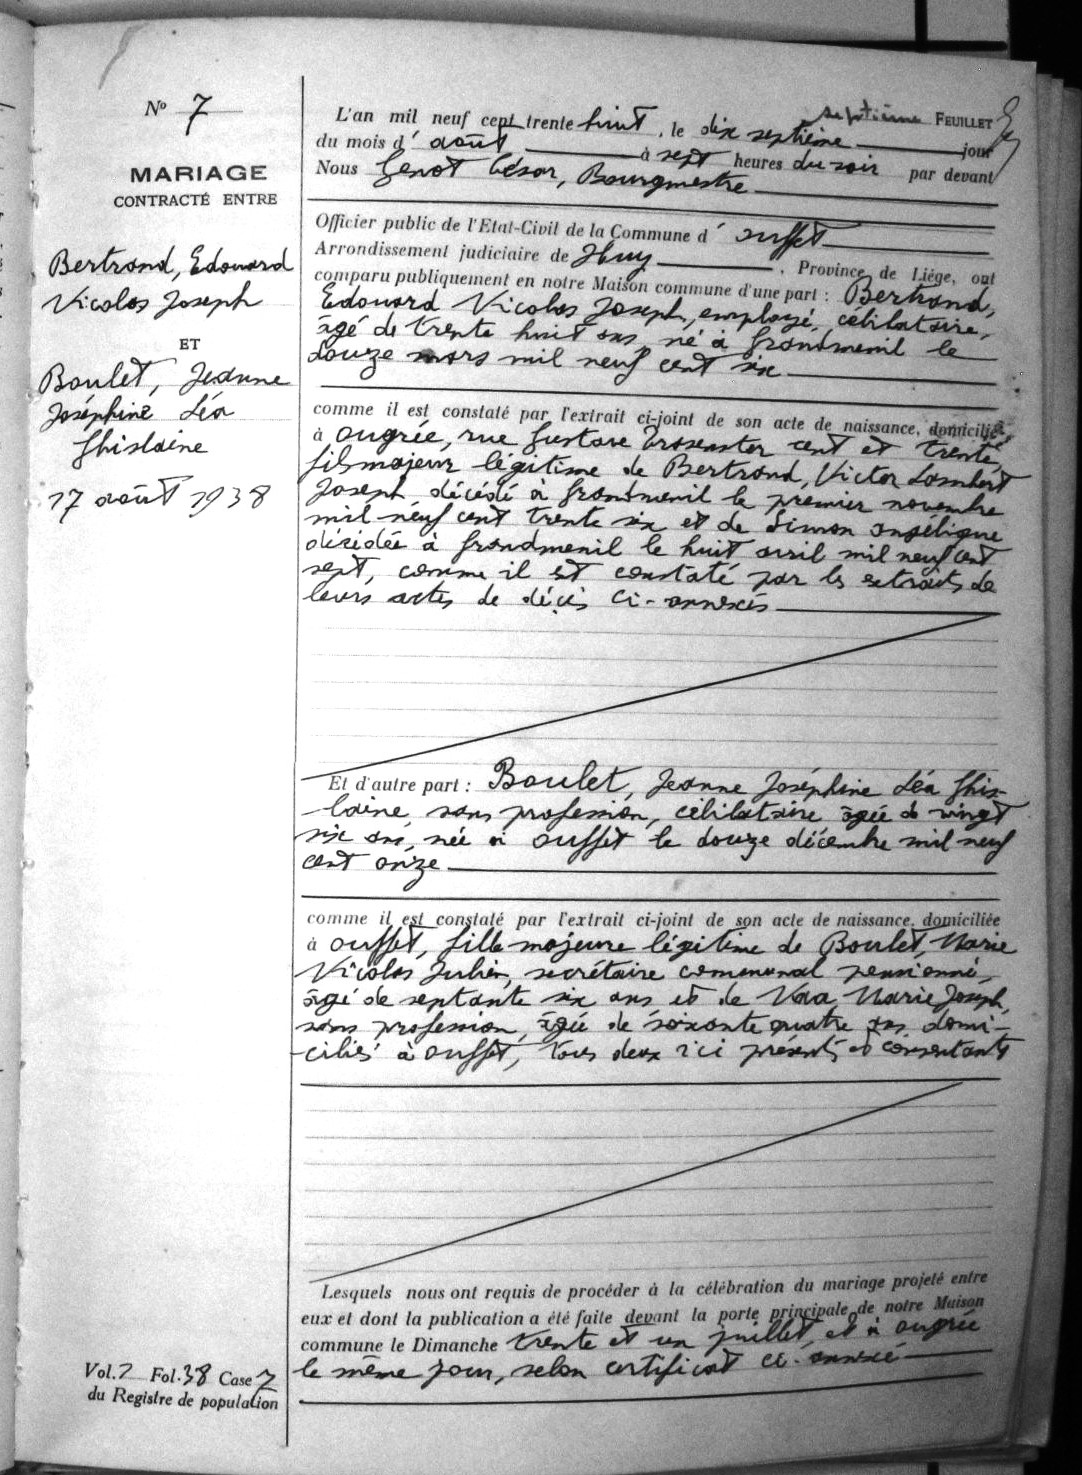 N° 7
MARIAGE
CONTRACTÉ ENTRE
Bertrand, Edouard
Nicolas Joseph
ET
Boulet, Jeanne
Joséphine Léa
Ghislaine
17 août 1938
septième FEUILLET
L'an mil neuf cent trente huit, le dix septième jour
du mois d' août à sept heures du soir par devant
Nous Genot César, Bourgmestre
Officier public de l'Etat-Civil de la Commune d' Ouffet
Arrondissement judiciaire de Huy, Province de Liége, ont
comparu publiquement en notre Maison commune d'une part : Bertrand,
Edouard Nicolas Joseph, employé, célibataire,
âgé de trente huit ans, né à Grandmenil le
douze mars mil neuf cent six
comme il est constaté par l'extrait ci-joint de son acte de naissance, domicilié
à Ougrée, rue Gustave cent et trente,
fils majeur légitime de Bertrand, Victor Lambert
Joseph, décédé à Grandmenil le premier novembre
mil neuf cent trente six et de Simon Angélique
décédée à Grandmenil le huit avril mil neuf cent
sept, comme il est constaté par les extraits de
leurs actes de décès ci-annexés
Et d'autre part : Boulet, Jeanne Joséphine Léa Ghis-
laine, sans profession, célibataire âgée de vingt
six ans, née à Ouffet le douze décembre mil neuf
cent onze
comme il est constaté par l'extrait ci-joint de son acte de naissance, domiciliée
à Ouffet, fille majeure légitime de Boulet, Marie
Nicolas Julien, secrétaire communal pensionné,
âgé de septante six ans et de Marie Joseph,
sans profession, âgée de soixante quatre ans domi-
ciliés à Ouffet, tous deux ici présents et consentants
Lesquels nous ont requis de procéder à la célébration du mariage projeté entre
eux et dont la publication a été faite devant la porte principale de notre Maison
commune le Dimanche trente et un juillet, et à Ougrée
le même jour, selon certificat ci-annexé
Vol. 2 Fol. 38 Case 7
du Registre de population